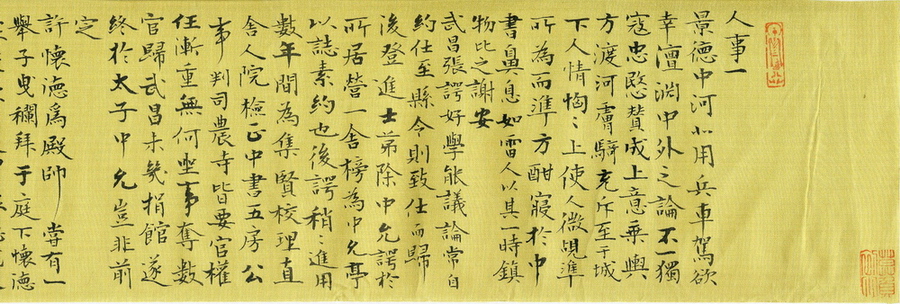 人事一
景德中河北用兵車駕欲
幸澶渊中外之論不一獨
寇忠愍贊成上意乘輿
方渡河虜騎充斥至于城
下人情恟〻上使人微覘準
所為而準方酣寢於中
書鼻息如雷人以其一時鎮
物比之謝安
武昌張諤好學能議論常自
約仕至縣令則致仕而歸
後登進士第除中允諤於
所居營一舍榜為中允亭
以誌素約也後諤稍〻進用
數年間為集賢校理直
舍人院檢正中書五房公
事判司農寺皆要官權
任漸重無何坐事奪數
官歸武昌未幾捐館遂
終於太子中允豈非前
定
許懷德爲殿帥嘗有一
舉子曳襴拜于庭下懷德